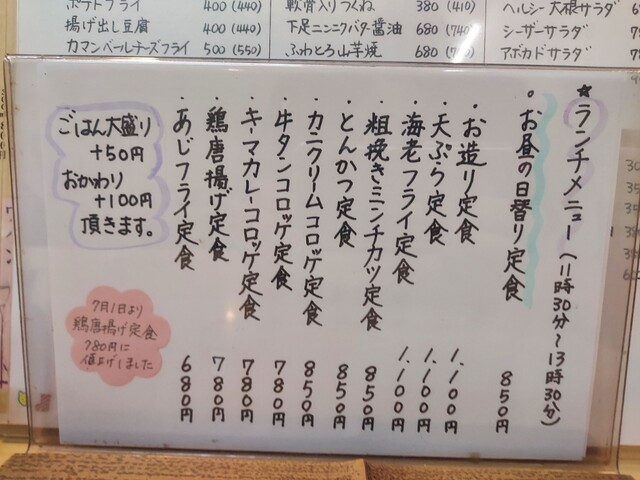 ポテトフライ 400 (440)
揚げ出し豆腐 400 (440)
カマンベールチーズフライ 500 (550)
軟骨入りつくね 380 (410)
下足ニンニクバター醤油 680 (740)
ふわとろ山芋焼 680
ヘルシー大根サラダ
シーザーサラダ
アボカドサラダ
☆ランチメニュー(11時30分〜13時30分)
。お昼の日替り定食 850円
・お造り定食 1,100円
・天ぷら定食 1,100円
・海老フライ定食 1,100円
・粗挽きミンチカツ定食 850円
・とんかつ定食 850円
・カニクリームコロッケ定食 850円
・牛タンコロッケ定食 780円
・キーマカレーコロッケ定食 780円
・鶏唐揚げ定食 780円
・あじフライ定食 680円
ごはん大盛り
+50円
おかわり
+100円
頂きます。
7月1日より
鶏唐揚げ定食
780円に
値上げしました